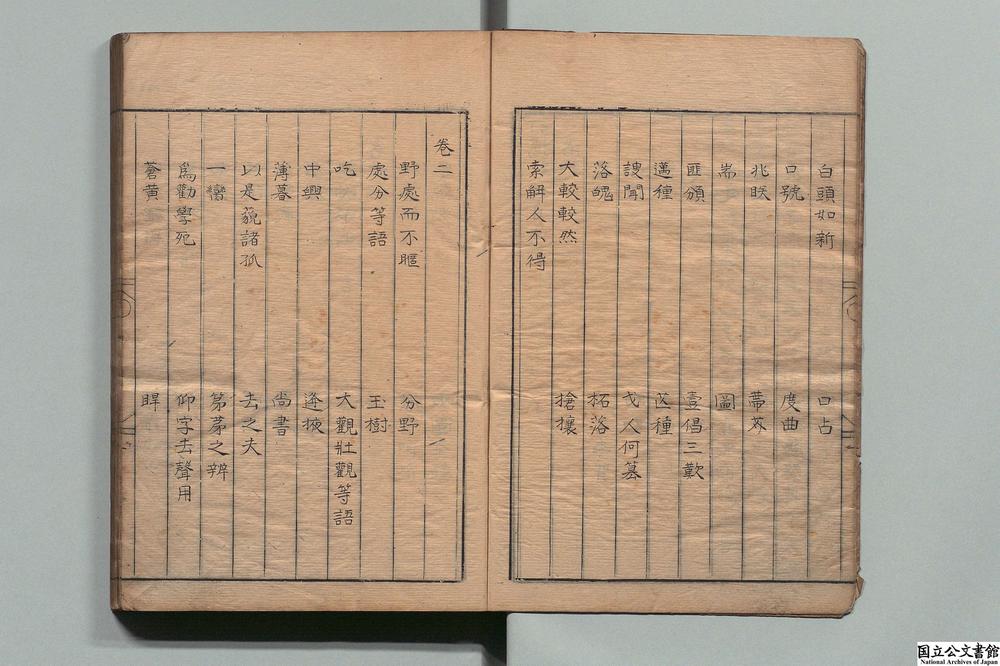 白頭如新　口占
口號　度曲
兆眹　蔕芥
耑　圖
匪頒　壹倡三歎
邁種　芒種
謏聞　弋人何篡
落魄　柘落
大較較然　搶攘
索解人不得
卷二
野處而不暱　分野
處分等語　玉樹
吃　大觀壯觀等語
中興　逢掖
薄暮　尚書
以是藐諸孤　去之夫
一臠　第茅之辨
爲勸學死　仰字去聲用
蒼黃　睅
国立公文書館
National Archives of Japan